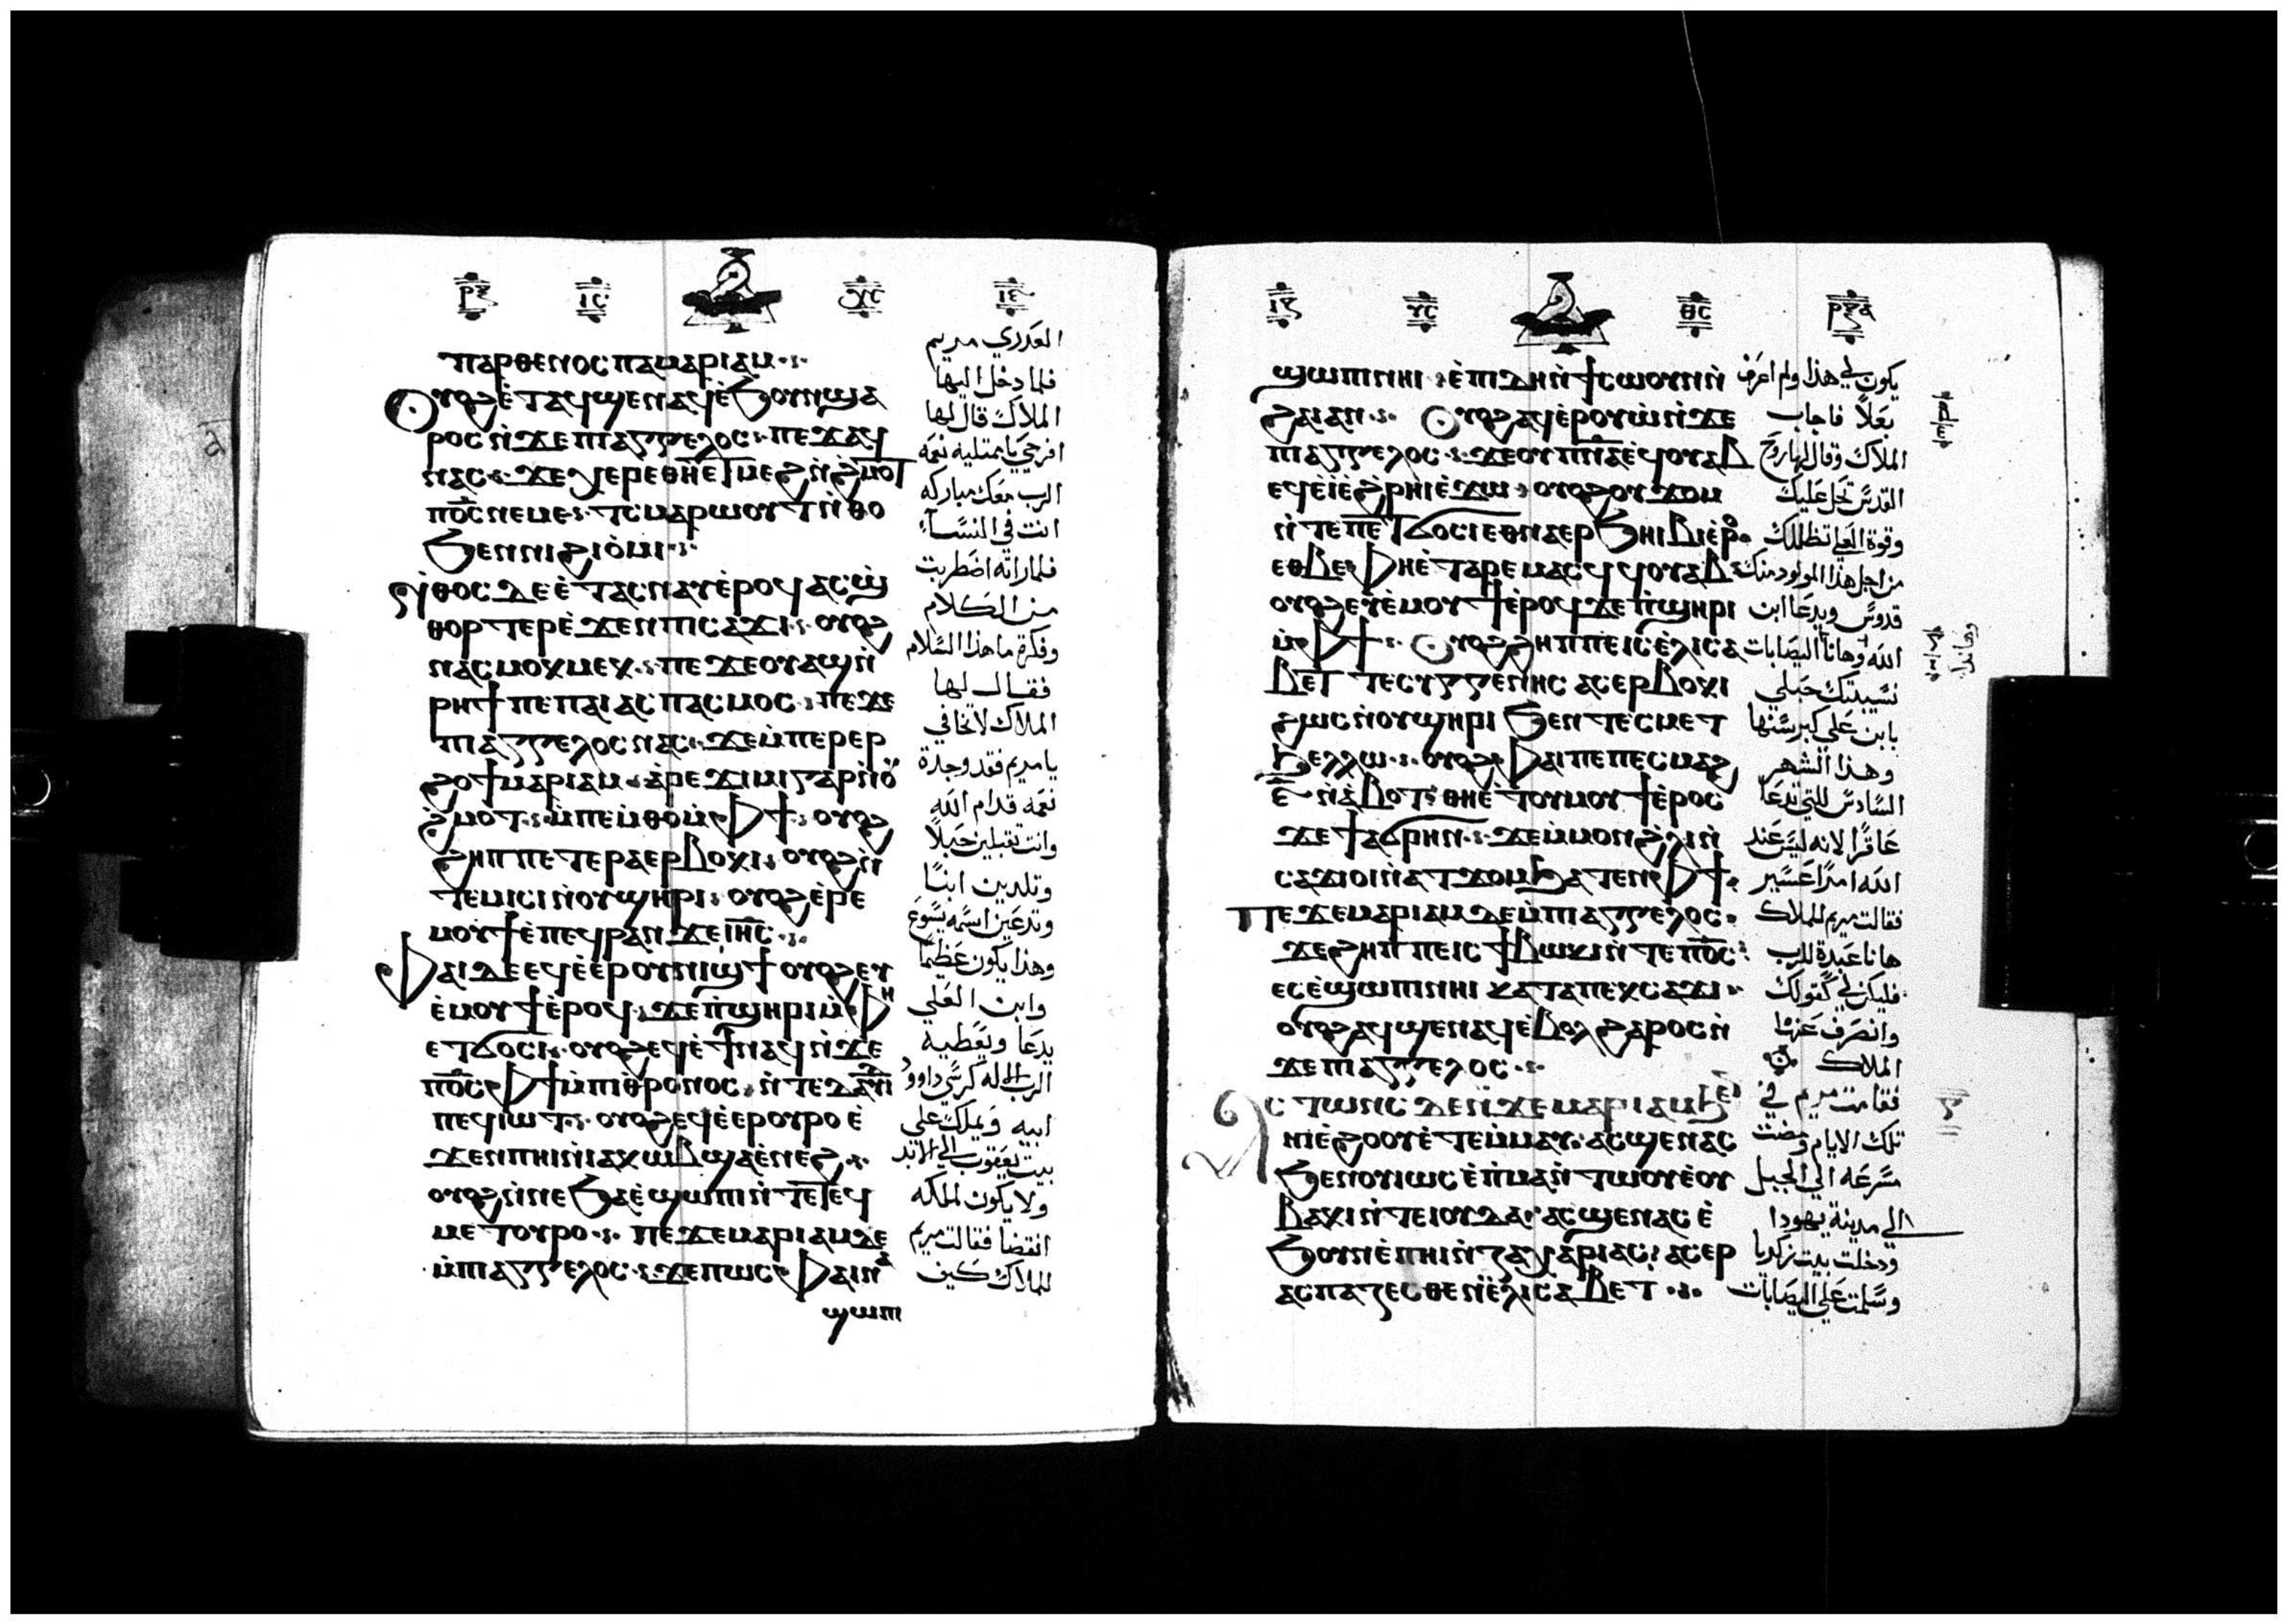 ⲣⲝ ⲓⲥ ⲭⲥ
ⲡⲁⲣⲑⲉⲛⲟⲥ ⲡⲉ ⲙⲁⲣⲓⲁⲙ
ⲟⲩⲟϩ ⲉ̀ⲧⲁϥϣⲉⲛⲁϥ ⲉ̀ϧⲟⲩⲛ ϣⲁ
ⲣⲟⲥ ⲛ̀ϫⲉ ⲡⲓⲁⲅⲅⲉⲗⲟⲥ ⲡⲉϫⲁϥ
ⲛⲁⲥ ϫⲉ ⲭⲉⲣⲉ ⲑⲏⲉⲑⲙⲉϩ ⲛ̀ϩⲙⲟⲧ
ⲡ⳪ ⲛⲉⲙⲉ ⲧⲥⲙⲁⲣⲱⲟⲩⲧ ⲛ̀ⲑⲟ
ϧⲉⲛ ⲛⲓϩⲓⲟ̀ⲙⲓ
ⲛ̀ⲑⲟⲥ ⲇⲉ ⲉ̀ⲧⲁⲥⲛⲁⲩ ⲉ̀ⲣⲟϥ ⲁⲥϣ̀
ⲑⲟⲣⲧⲉⲣ ⲉ̀ϫⲉⲛ ⲡⲓⲥⲁϫⲓ ⲟⲩⲟϩ
ⲛⲁⲥⲙⲟⲕⲙⲉⲕ ⲡⲉ ϫⲉ ⲟⲩ ⲁϣ ⲛ̀
ⲣⲏϯ ⲡⲉ ⲡⲁⲓ ⲁⲥⲡⲁⲥⲙⲟⲥ ⲡⲉϫⲉ
ⲡⲓⲁⲅⲅⲉⲗⲟⲥ ⲛⲁⲥ ϫⲉ ⲙ̀ⲡⲉⲣⲉⲣ
ϩⲟϯ ⲙⲁⲣⲓⲁⲙ ⲁ̀ⲣⲉϫⲓⲙⲓ ⲅⲁⲣ ⲛ̀ⲟⲩ
ϩ̀ⲙⲟⲧ ⲙ̀ⲡⲉⲙⲑⲟ ⲙ̀ⲫϯ ⲟⲩⲟϩ
ϩⲏⲡⲡⲉ ⲧⲉⲣⲁⲉⲣⲃⲟⲕⲓ ⲟⲩⲟϩ ⲛ̀
ⲧⲉⲙⲓⲥⲓ ⲛ̀ⲟⲩϣⲏⲣⲓ ⲟⲩⲟϩ ⲉ̀ⲣⲉ
ⲙⲟⲩϯ ⲉ̀ⲡⲉϥⲣⲁⲛ ϫⲉ ⲓⲏⲥ
ⲫⲁⲓ ⲇⲉ ⲉϥⲉ̀ⲉⲣⲟⲩⲛⲓϣϯ ⲟⲩⲟϩ ⲉⲩ
ⲉ̀ⲙⲟⲩϯ ⲉ̀ⲣⲟϥ ϫⲉ ⲡ̀ϣⲏⲣⲓ ⲙ̀ⲫⲏ
ⲉⲧϭⲟⲥⲓ ⲟⲩⲟϩ ⲉϥⲉ̀ϯ ⲛⲁϥ ⲛ̀ϫⲉ
ⲡ⳪ ⲫϯ ⲙ̀ⲡⲓⲑⲣⲟⲛⲟⲥ ⲛ̀ⲧⲉ ⲇⲁⲇ
ⲡⲉϥⲓⲱⲧ ⲟⲩⲟϩ ⲉϥⲉ̀ⲉⲣⲟⲩⲣⲟ ⲉ̀
ϫⲉⲛ ⲡⲏⲓ ⲛ̀ⲓⲁⲕⲱⲃ ϣⲁ ⲉ̀ⲛⲉϩ
ⲟⲩⲟϩ ⲛ̀ⲛⲉ ϧⲁⲉ̀ ϣⲱⲡⲓ ⲛ̀ⲧⲉ ⲧⲉϥ
ⲙⲉⲧⲟⲩⲣⲟ ⲡⲉϫⲉ ⲙⲁⲣⲓⲁⲙ ⲇⲉ
ⲙ̀ⲡⲓⲁⲅⲅⲉⲗⲟⲥ ϫⲉ ⲡⲱⲥ ⲫⲁⲓ ⲛⲁ
ϣⲱⲡⲓ
العدري مريم
فلما دخل اليها
الملاك قال لها
افرحي يا ممتليه نعمه
الرب معك مباركه
انت في النساء
فلما راته اضطربت
من الكلام
وفكرة ما هذا السلام
فقال لها
الملاك لا تخافي
يا مريم فقد وجدة
نعمه قدام الله
وانت تقبلين حبلاً
وتلدين ابناً
وتدعين اسمه يسوع
وهذا يكون عظيما
وابن العلي
يدعا ويعطيه
الرب الاله كرسي داوود
ابيه ويملك علي
بيت يعقوب الي الابد
ولا يكون لملكه
انقضا فقالت مريم
للملاك كيف
ⲩⲥ ⲑⲥ ⲣⲝⲁ
ϣⲱⲡⲓ ⲛⲏⲓ ⲉ̀ⲡⲓⲇⲏ ⲛ̀ϯⲥⲱⲟⲩⲛ ⲛ̀
ϩⲁⲓ ⲁⲛ ⲟⲩⲟϩ ⲁϥⲉ̀ⲣⲟⲩⲱ̀ ⲛ̀ϫⲉ
ⲡⲓⲁⲅⲅⲉⲗⲟⲥ ϫⲉ ⲟⲩⲡ̅ⲛ̅ⲁ̅ ⲉϥⲟⲩⲁⲃ
ⲉϥⲉ̀ⲓ̀ ⲉ̀ϩⲣⲏⲓ ⲉ̀ϫⲱ ⲟⲩⲟϩ ⲟⲩϫⲟⲙ
ⲛ̀ⲧⲉ ⲡⲉⲧϭⲟⲥⲓ ⲉⲑⲛⲁⲉⲣϧⲏⲓⲃⲓ ⲉ̀ⲣⲟ
ⲉⲑⲃⲉ ⲫⲏ ⲉ̀ⲧⲁⲣⲉⲙⲁⲥϥ ϥⲟⲩⲁⲃ
ⲟⲩⲟϩ ⲉⲩⲉ̀ⲙⲟⲩϯ ⲉ̀ⲣⲟϥ ϫⲉ ⲡ̀ϣⲏⲣⲓ
ⲙ̀ⲫϯ ⲟⲩⲟϩ ϩⲏⲡⲡⲉ ⲓⲥ ⲉ̀ⲗⲓⲥⲁ
ⲃⲉⲧ ⲧⲉⲥⲩⲅⲅⲉⲛⲏⲥ ⲁⲥⲉⲣⲃⲟⲕⲓ
ϩⲱⲥ ⲛ̀ⲟⲩϣⲏⲣⲓ ϧⲉⲛ ⲧⲉⲥⲙⲉⲧ
ϧⲉⲗⲗⲱ ⲟⲩⲟϩ ⲫⲁⲓ ⲡⲉ ⲡⲉⲥⲙⲁϩ
ⲋ̅ ⲛ̀ⲁ̀ⲃⲟⲧ ⲑⲏ ⲉ̀ⲧⲟⲩⲙⲟⲩϯ ⲉ̀ⲣⲟⲥ
ϫⲉ ϯⲁϭⲣⲏⲛ ϫⲉ ⲙ̀ⲙⲟⲛ ϩ̀ⲗⲓ ⲛ̀
ⲥⲁϫⲓ ⲟⲓ ⲛ̀ⲁⲧϫⲟⲙ ϧⲁⲧⲉⲛ ⲫϯ
ⲡⲉϫⲉ ⲙⲁⲣⲓⲁⲙ ⲇⲉ ⲙ̀ⲡⲓⲁⲅⲅⲉⲗⲟⲥ
ϫⲉ ϩⲏⲡⲡⲉ ⲓⲥ ϯⲃⲱⲕⲓ ⲛ̀ⲧⲉ ⲡ⳪
ⲉⲥⲉ̀ϣⲱⲡⲓ ⲛⲏⲓ ⲕⲁⲧⲁ ⲡⲉⲕⲥⲁϫⲓ
ⲟⲩⲟϩ ⲁϥϣⲉⲛⲁϥ ⲉ̀ⲃⲟⲗ ϩⲁⲣⲟⲥ ⲛ̀
ϫⲉ ⲡⲓⲁⲅⲅⲉⲗⲟⲥ
ⲁⲥⲧⲱⲛⲥ ⲇⲉ ⲛ̀ϫⲉ ⲙⲁⲣⲓⲁⲙ ϧⲉⲛ
ⲛⲓⲉ̀ϩⲟⲟⲩ ⲉ̀ⲧⲉⲙ̀ⲙⲁⲩ ⲁⲥϣⲉⲛⲁⲥ
ϧⲉⲛ ⲟⲩⲓⲱⲥ ⲉ̀ⲡ̀ⲙⲁ ⲛ̀ⲧⲱⲟⲩ ⲉ̀ⲟⲩ
ⲃⲁⲕⲓ ⲛ̀ⲧⲉ ⲓⲟⲩⲇⲁ ⲁⲥϣⲉⲛⲁⲥ ⲉ̀
ϧⲟⲩⲛ ⲉ̀ⲡⲏⲓ ⲛ̀ⲍⲁⲭⲁⲣⲓⲁⲥ ⲁⲥⲉⲣ
ⲁⲥⲡⲁⲍⲉⲥⲑⲉ ⲛ̀ⲉ̀ⲗⲓⲥⲁⲃⲉⲧ
يكون لي هذا ولم اعرف
بعلاً فاجاب
الملاك وقال لها روح
القدس تحل عليك
وقوة العلي تظللك
من اجل هذا المولود منك
قدوس ويدعا ابن
الله وهانا اليصابات
نسيبتك حبلي
بابن علي كبر سنها
وهذا الشهر
السادس للتي تدعا
عاقرا لانه ليس عند
الله امرا عسير
فقالت مريم للملاك
هانا عبدة للرب
فليكن لي كقولك
وانصرف عنها
الملاك
فقامت مريم في
تلك الايام ومضت
بسرعه الي الجبل
الي مدينة يهودا
ودخلت بيت زكريا
وسلمت علي اليصابات